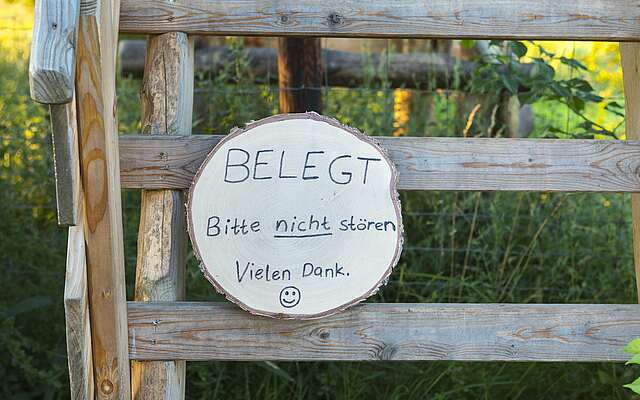 BELEGT
Bitte nicht stören
Vielen Dank.